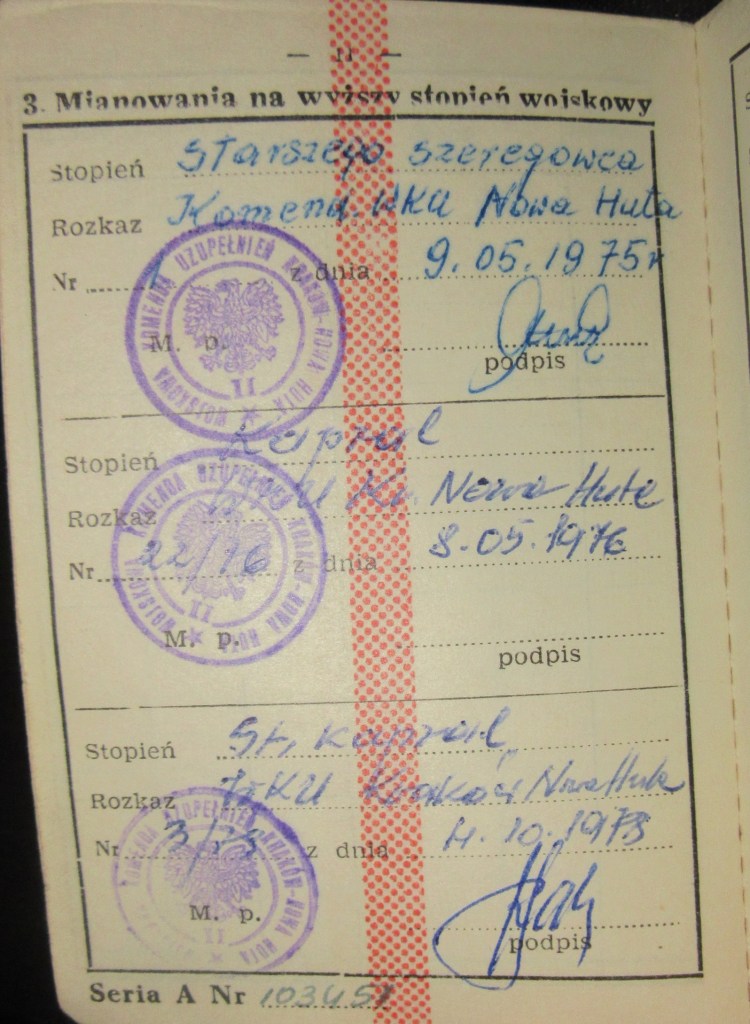 — 11 —
3. Mianowania na wyższy stopień wojskowy
Stopień starszego szeregowca
Rozkaz Komend. WKU Nowa Huta
Nr 1 z dnia 9.05.1975r
M. p.
podpis
WOJSKOWA KOMENDA UZUPEŁNIEŃ KRAKÓW-NOWA HUTA
II
Stopień Kapral
Rozkaz Kr. Nowa Huta
Nr 22/76 z dnia 8.05.1976
M. p.
podpis
WOJSKOWA KOMENDA UZUPEŁNIEŃ KRAKÓW-NOWA HUTA
II
Stopień St. kapral
Rozkaz WKU Kraków Nowa Huta
Nr z dnia
M. p.
podpis
KOMENDA UZUPEŁNIEŃ KRAKÓW-NOWA HUTA
II
Seria A Nr 103451